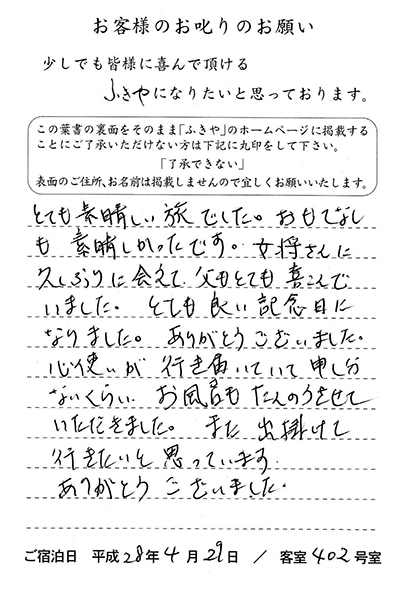 お客様のお叱りのお願い
少しでも皆様に喜んで頂ける
ふきやになりたいと思っております。
この葉書の裏面をそのまま「ふきや」のホームページに掲載する
ことにご了承いただけない方は下記に丸印をして下さい。
「了承できない」
表面のご住所、お名前は掲載しませんので宜しくお願いいたします。
とても素晴しい旅でした。おもてなし
も素晴しかったです。女将さんに
久しぶりに会えて父もとても喜こんで
いました。とても良い記念日に
なりました。ありがとうございました。
心使いが行き届いていて申し分
ないくらい お風呂もたんのうさせて
いただきました。また出掛けて
行きたいと思っています
ありがとうございました。
ご宿泊日 平成28年4月29日 / 客室402号室